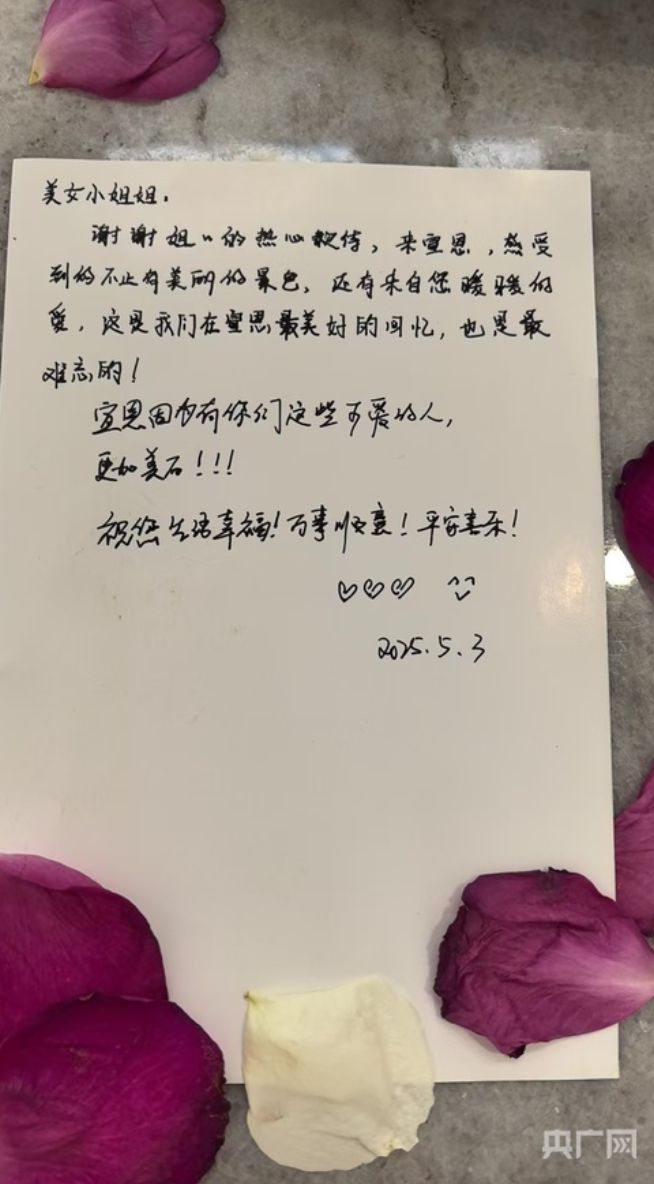 美女小姐姐.
谢谢姐〃的热心款待, 来宣恩, 感受
到的不止有美丽的景色, 还有来自您暖暖的
爱, 这是我们在宣恩最美好的回忆, 也是最
难忘的!
宣恩因为有你们这些可爱的人,
更加美好!!!
祝您生活幸福! 万事顺意! 平安喜乐!
♡♡♡ ^^
2025.5.3
央广网